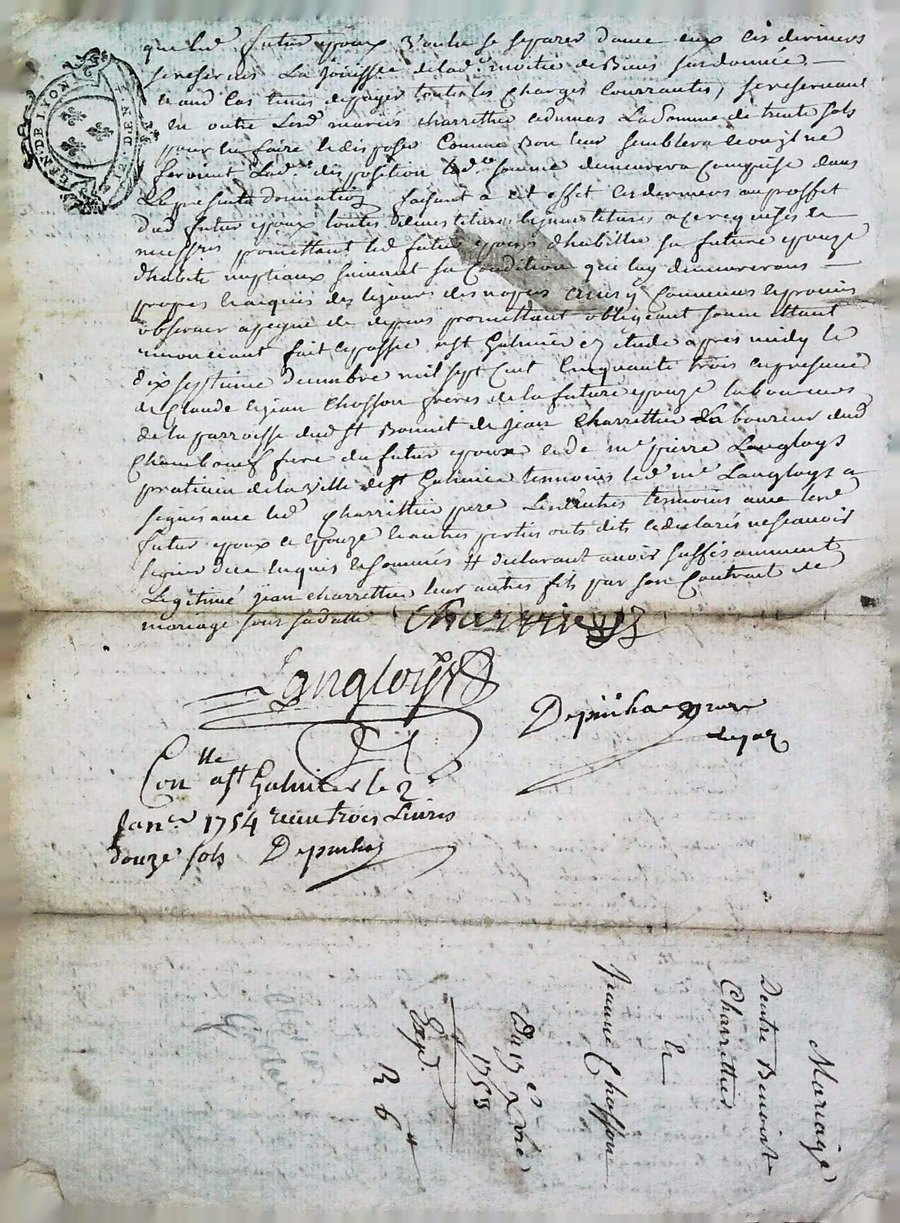 GEN. DE LYON
que led futur epoux voulu se separer dame eux ces derniers
se reserves La joüissce de lad. moitié de Biens sus donnée
audcas tenus de payer toutes les Charges Courrantes, se reservant
en outre Lesd mariés charrettier et dumas La Somme de trente sols
pour en faire et disposer Comme Bon leur semblera et ou ils ne
feroient Lad. disposition lad. somme demeurera Comprise dans
La presente donnation, faisant a cet effet ces derniers au proffet
dud futur epoux toutes a ce requises et
necessres promettant led futur epoux d'habiller sa future epouze
d'habits nuptiaux suivant sa Condition qui luy demeureront
propres et acquis des le jours des nopces Convenus et promis
observer a peyne de depens promettant obligeant soumettant
renonciant fait et passé a st Galmier ez étude apres midy le
dix septieme decembre mil sept Cent Cinquante trois en presence
de Claude et jean Chosson freres de la future epouze laboureurs
de la parroisse dud st Bonnet de jean Charrettier Laboureur dud
Chambouef frere du futur epoux et de me pierre Langloys
praticien de la ville de st Galmier temoins led me Langloys a
signé avec led Charrettier pere Les autres temoins avec lesd
futur epoux et epouze et autres parties ont dit et declarés ne scavoir
signer de ce enquis et sommés # declarant avoir suffisamment
Legitimé jean charrettier leur autres fils par son Contrat de
mariage sous sa datte Charretier
Langloys
Depinhac
Con lle a st Galmier le 2
janer 1754 receu trois Livres
douze sols Depinhac
Mariage
Dentre Benoist
Charrettier
et
Jeanne Chosson
Du 17e Xbre
1753
Exp.
R 6 tt